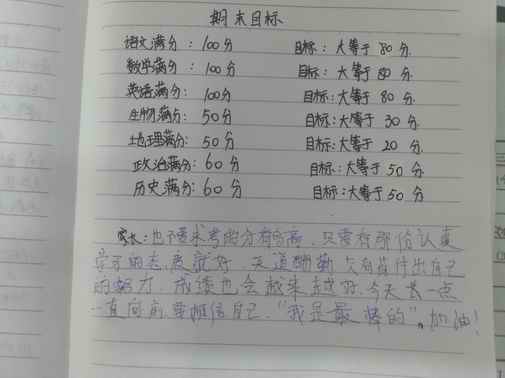 期末目标
语文满分：100分 目标：大等于80分.
数学满分：100分 目标：大等于80分.
英语满分：100分 目标：大等于80分.
生物满分：50分 目标：大等于30分.
地理满分：50分 目标：大等于20分.
政治满分：60分 目标：大等于50分
历史满分：60分 目标：大等于50分
家长：也不要求考的分有多高，只要有那份认真
学习的态度就好，天道酬勤 只有肯付出自己
的努力，成绩也会越来越好，今天去一点
一直向前 相信自己，“我是最棒的”。加油！